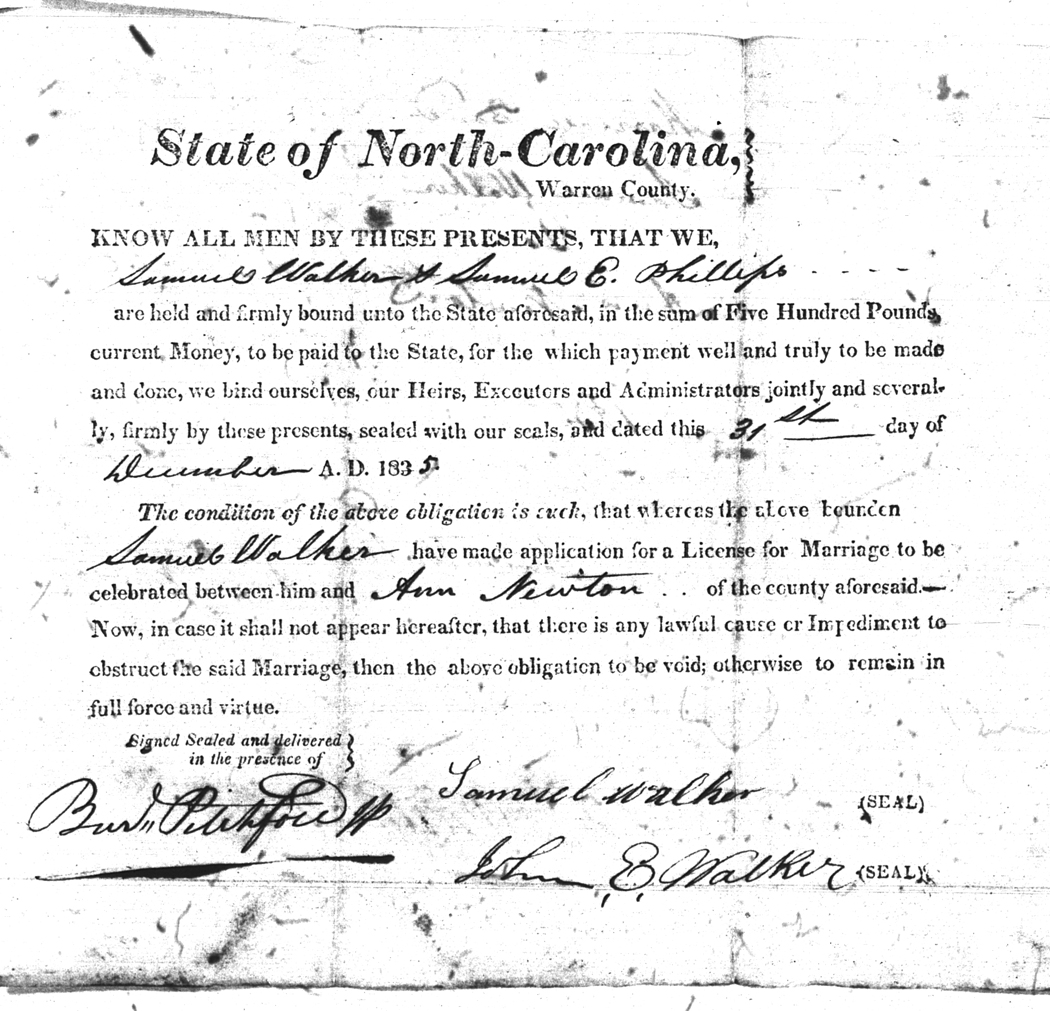 State of North-Carolina,
Warren County.
KNOW ALL MEN BY THESE PRESENTS, THAT WE,
Samuel Walker & Samuel E. Phillips
are held and firmly bound unto the State aforesaid, in the sum of Five Hundred Pounds,
current Money, to be paid to the State, for the which payment well and truly to be made
and done, we bind ourselves, our Heirs, Executors and Administrators jointly and several-
ly, firmly by these presents, sealed with our seals, and dated this 31st day of
December A. D. 1835.
The condition of the above obligation is such, that whereas the above bounden
Samuel Walker have made application for a License for Marriage to be
celebrated between him and Ann Newton . . of the county aforesaid.—
Now, in case it shall not appear hereafter, that there is any lawful cause or Impediment to
obstruct the said Marriage, then the above obligation to be void; otherwise to remain in
full force and virtue.
Signed Sealed and delivered
in the presence of
Samuel Walker (SEAL)
Pitchford
John B. Walker (SEAL)